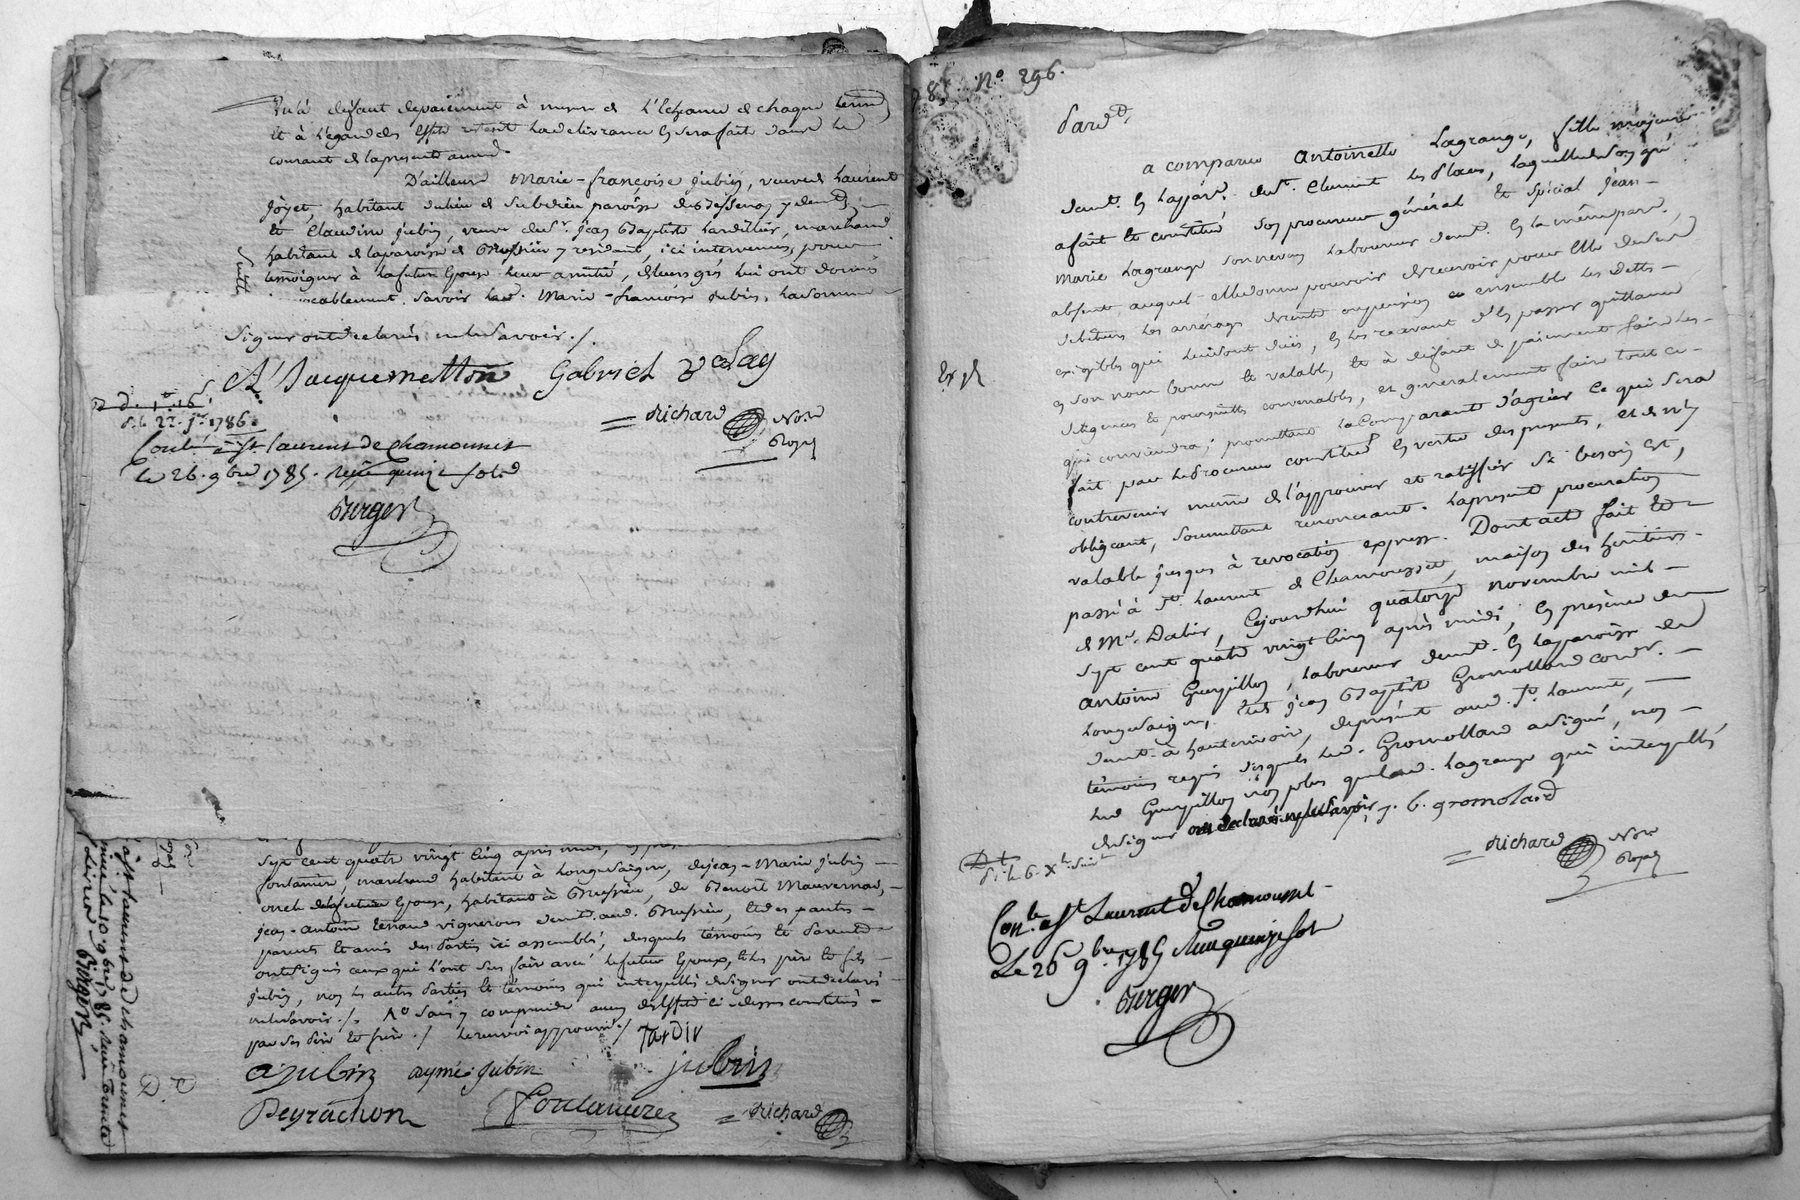 Et à défaut de paiement à mesure de l'échéance de chaque terme
Et à l'égard des effets et
la délivrance en sera faite dans le
courant de la presente année.
D'ailleurs Marie-françoise jubin, veuve de Laurent
joyet, habitant
paroisse de Bessenay y demt.
Et Claudine jubin, veuve de sr. jean Baptiste
marchand
habitant de la paroisse de Brussieu y residant, ici intervenues, pour
temoigner à la future Epouse leur amitié, de leurs grés lui ont donné
savoir lad. Marie-françoise jubin, la somme
signer ont declarés ne le savoir ./.
Jacquemetton Gabriel
= Richard Nore
Royal
22. jer 1786.
Conlé à St. laurent de Chamousset
le 26. 9bre 1785. reçu quinze sols
Burger
à St. laurent de Chamousset
le 10 9bre 1785.
Burger
sept cent quatre vingt cinq après midi, en
fontanier, marchand habitant à Longessaigne, de jean-Marie jubin
oncle de la future Epouse, habitant à Brussieu, de Benoit Mauvernay,
jean-antoine
vigneron demt. aud. Brussieu, et des parties
parents et amis des parties ici assemblés, desquels témoins et parents
ont signé ceux qui l'ont sus faire avec le futur Epoux, et les père et fils
jubin, non les autres parties et témoins qui interpellés de signer ont declaré
ne le savoir ./.
par ses père et frère ./. le renvoi approuvé ./. Tardiv
ajubin aymé jubin jubin
Peyrachon fontaniere = Richard
D. C
No. 296.
Pard.
a comparu Antoinette Lagrange, fille majeure
demt. en la par. de St. Clement les Places, laquelle de son gré
a fait et constitué son procureur général et spécial jean-
Marie Lagrange son neveu laboureur demt. en la même par.
absent, auquel elle donne pouvoir de recevoir pour elle de ses
debiteurs les arrérages de rente ou pension ensemble les dettes
exigibles qui lui sont dûës, en les recevant d'en passer quittance
en son nom bonne et valable, et à défaut de paiement faire les
diligences et poursuites convenables, et generalement faire tout ce
qui conviendra; promettant la Comparante d'agréer ce qui sera
fait par le Procureur constitué en vertu des presentes, et de n'y
contrevenir même de l'approuver et ratiffier si besoin est,
obligeant, soumettant renonçant. la presente procuration
valable jusques à revocation expresse. Dont acte fait et
passé à St. Laurent de Chamousset, maison des heritiers
de Mr. Dalin, cejourdhui quatorze novembre mil
sept cent quatre vingt cinq après midi, en présence de
Antoine Guepillon, laboureur demt. en la paroisse de
Longessaigne, et de jean Baptiste Gromollard cordr.
demt. à hauterivoire, de présent aud. St. Laurent,
témoins requis desquels led. Gromollard a signé, non
led Guepillon non plus que lad. Lagrange qui interpellés
de signer ont declaré ne le savoir. j. b. gromolard
= Richard Nore
Royal
Conlé à St Laurent de Chamousset
Le 26 9bre 1785 Reçu quinze sols
Burger